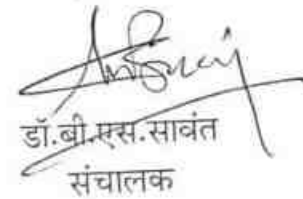 डॉ.बी.एस.सावंत
संचालक